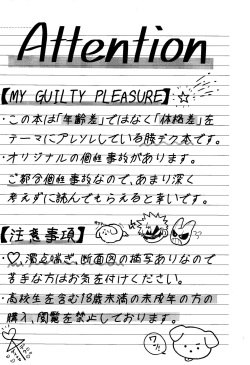 Attention
【MY GUILTY PLEASURE】
・この本は「年齢差」ではなく「体格差」を
テーマにアレソレしている勝デク本です。
・オリジナルの個性事故があります。
ご都合個性事故なので、あまり深く
考えずに読んでもらえると幸いです。
【注意事項】
・♡、濁点喘ぎ、断面図の描写ありなので
苦手な方はお気を付けください。
・高校生を含む18歳未満の未成年の方の
購入、閲覧を禁止しております。
ワン